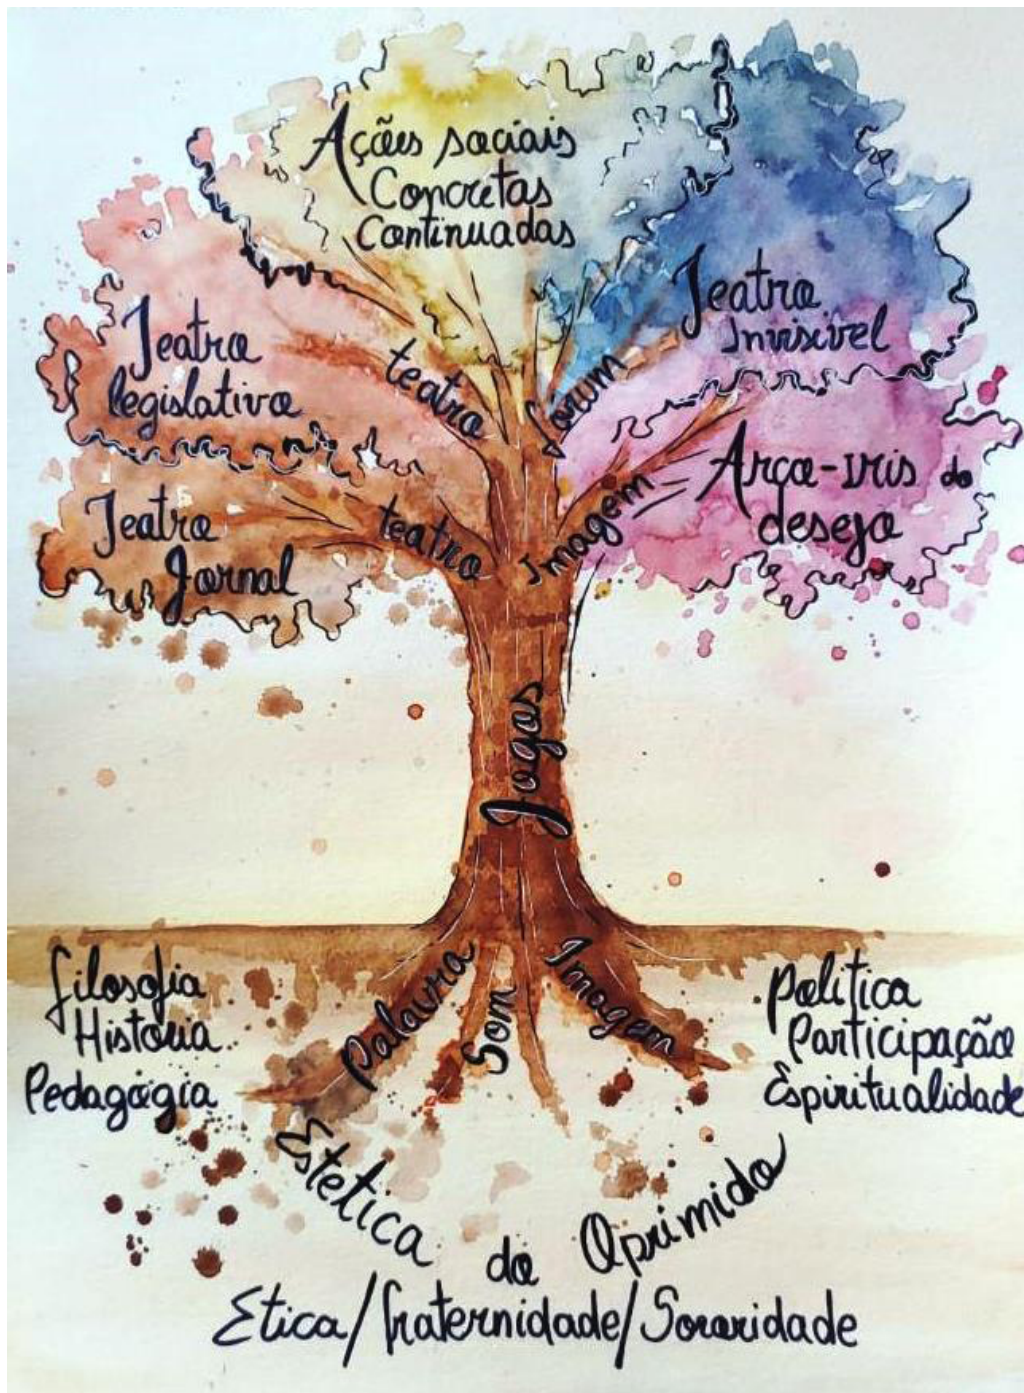 Ações sociais
Concretas
Continuadas
Teatro
Invisível
Teatro
legislativo
teatro
fórum
Arco-íris do
desejo
Teatro
Jornal
teatro
Imagem
Jogos
filosofia
História
Pedagogia
Palavra
Som
Imagem
política
Participação
Espiritualidade
Estética do Oprimido
Ética/fraternidade/Sororidade